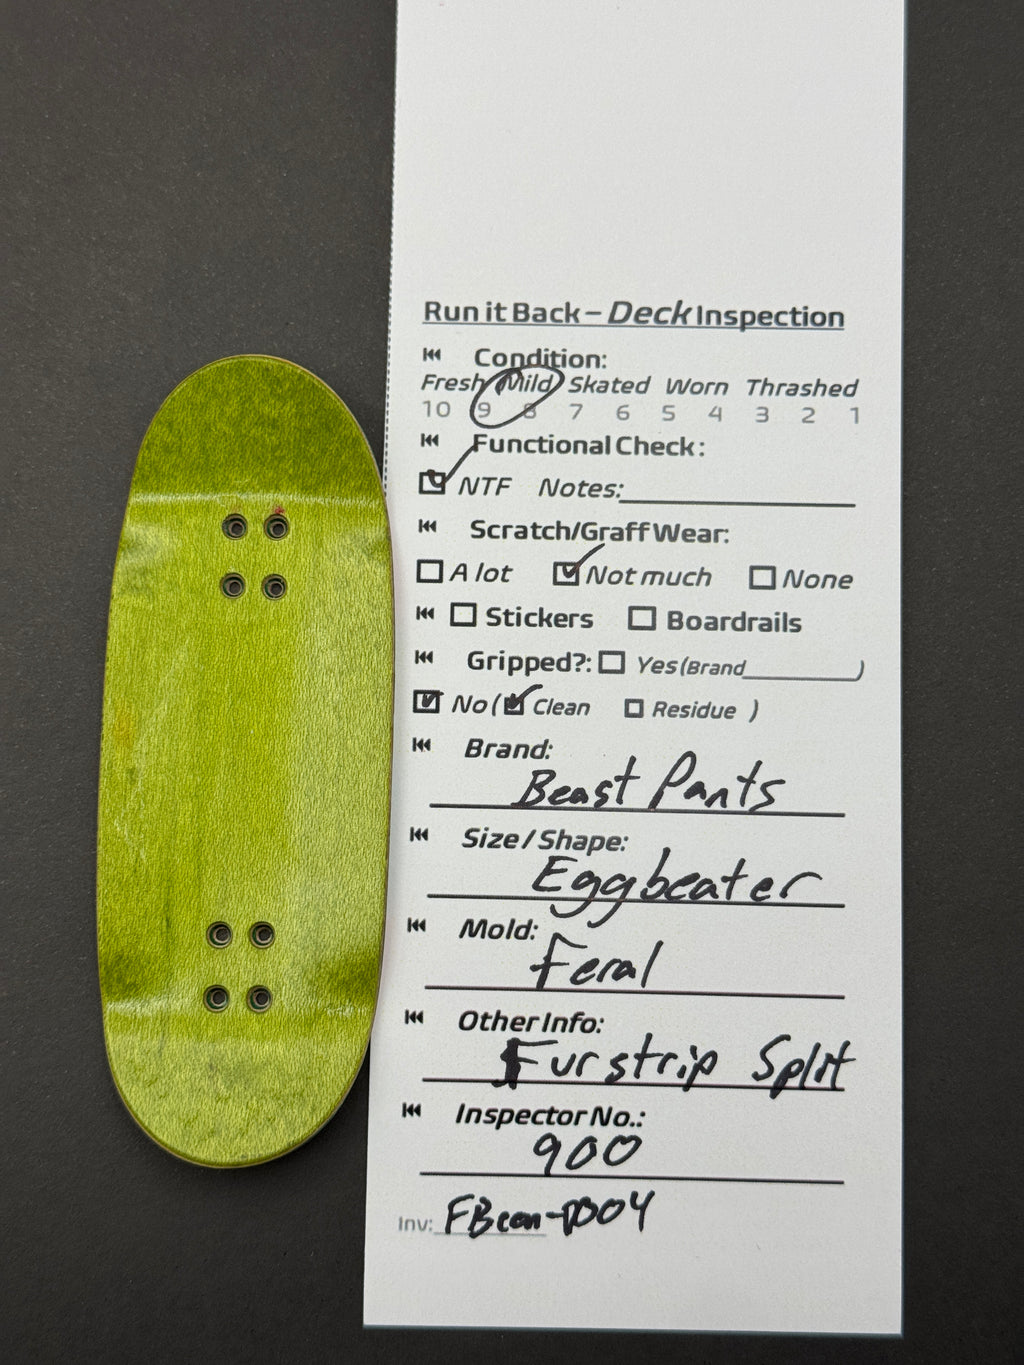 Run it Back – Deck Inspection
Condition:
Fresh Mild Skated Worn Thrashed
10 9 8 7 6 5 4 3 2 1
Functional Check:
NTF Notes:
Scratch/Graff Wear:
A lot Not much None
Stickers Boardrails
Gripped?: Yes (Brand )
No ( Clean Residue )
Brand:
Beast Pants
Size / Shape:
Eggbeater
Mold:
Feral
Other Info:
Fur strip Split
Inspector No.:
900
Inv: